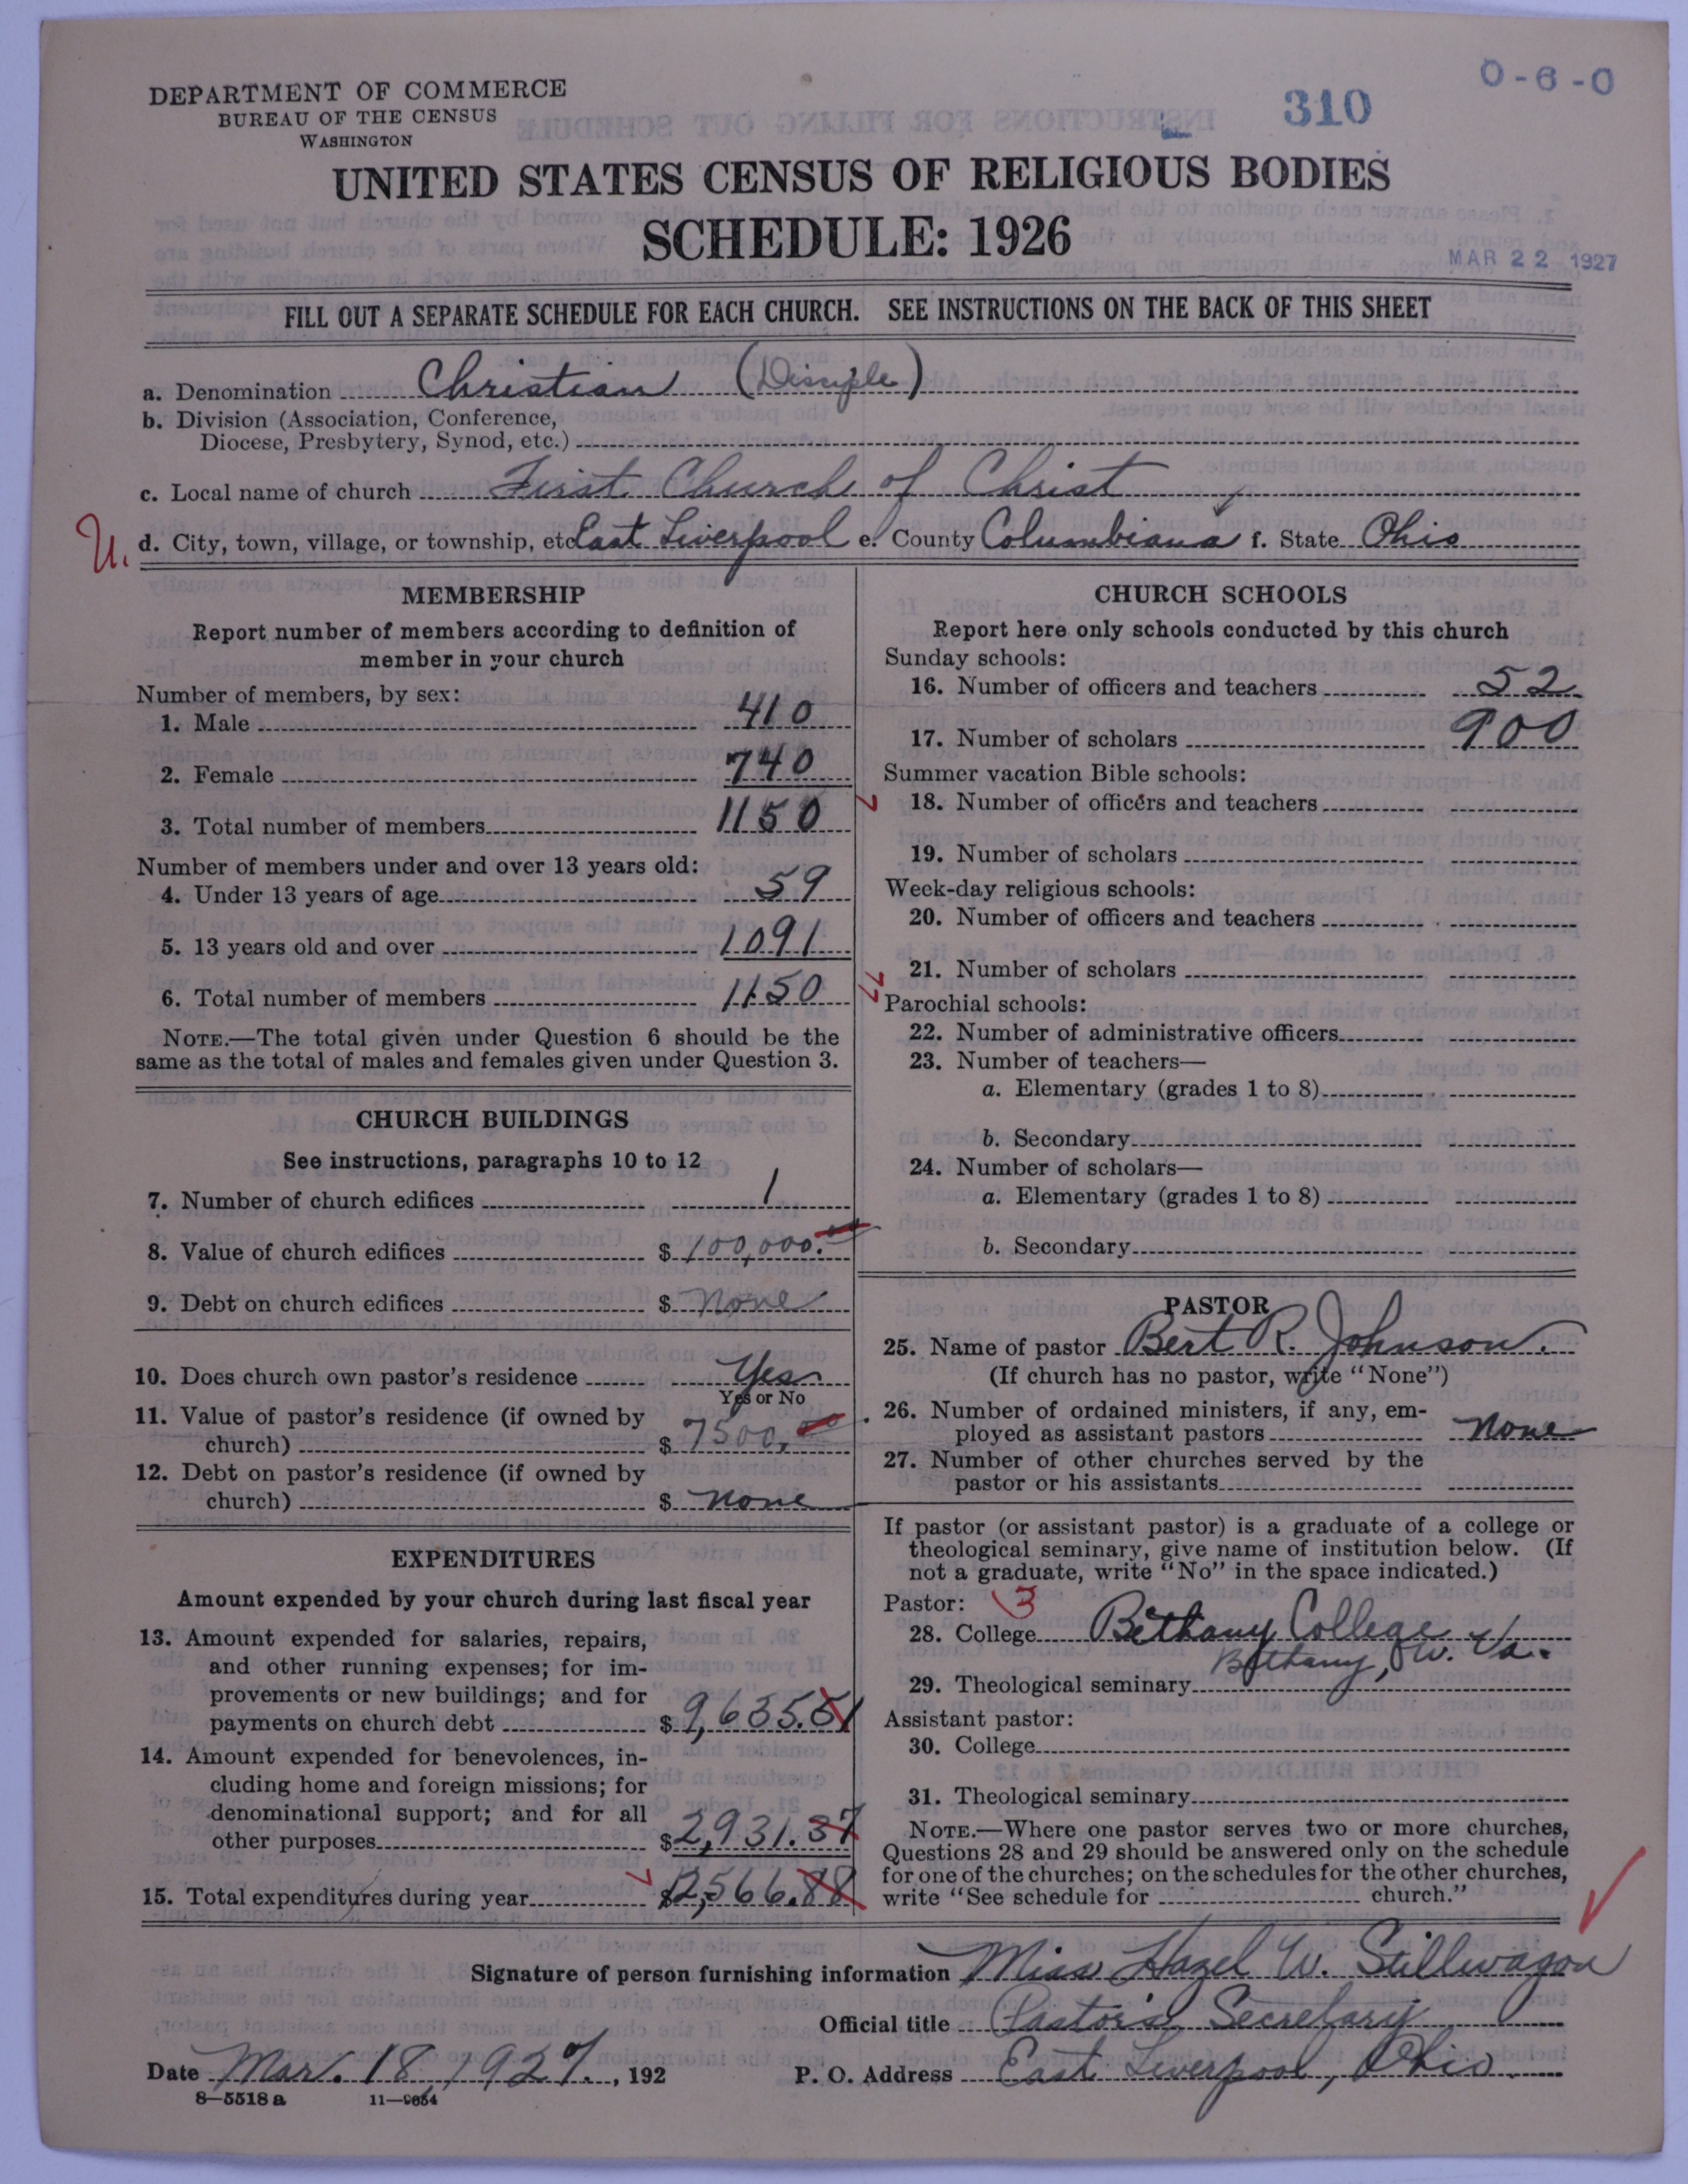 DEPARTMENT OF COMMERCE
BUREAU OF THE CENSUS
WASHINGTON
310
0-6-0
UNITED STATES CENSUS OF RELIGIOUS BODIES
SCHEDULE: 1926
MAR 22 1927
FILL OUT A SEPARATE SCHEDULE FOR EACH CHURCH. SEE INSTRUCTIONS ON THE BACK OF THIS SHEET
a. Denomination Christian (Disciple)
b. Division (Association, Conference,
Diocese, Presbytery, Synod, etc.)
c. Local name of church First Church of Christ
U. d. City, town, village, or township, etc East Liverpool e. County Columbiana f. State Ohio
MEMBERSHIP
Report number of members according to definition of
member in your church
Number of members, by sex:
1. Male 410
2. Female 740
3. Total number of members 1150
Number of members under and over 13 years old:
4. Under 13 years of age 59
5. 13 years old and over 1091
6. Total number of members 1150
NOTE.—The total given under Question 6 should be the
same as the total of males and females given under Question 3.
CHURCH BUILDINGS
See instructions, paragraphs 10 to 12
7. Number of church edifices 1
8. Value of church edifices $ 100,000.00
9. Debt on church edifices $ None
10. Does church own pastor's residence Yes
Yes or No
11. Value of pastor's residence (if owned by
church) $ 7500.00
12. Debt on pastor's residence (if owned by
church) $ None
EXPENDITURES
Amount expended by your church during last fiscal year
13. Amount expended for salaries, repairs,
and other running expenses; for im-
provements or new buildings; and for
payments on church debt $ 9,635.51
14. Amount expended for benevolences, in-
cluding home and foreign missions; for
denominational support; and for all
other purposes $ 2,931.37
15. Total expenditures during year $ 12,566.88
CHURCH SCHOOLS
Report here only schools conducted by this church
Sunday schools:
16. Number of officers and teachers 52
17. Number of scholars 900
Summer vacation Bible schools:
18. Number of officers and teachers
19. Number of scholars
Week-day religious schools:
20. Number of officers and teachers
21. Number of scholars
Parochial schools:
22. Number of administrative officers
23. Number of teachers—
a. Elementary (grades 1 to 8)
b. Secondary
24. Number of scholars—
a. Elementary (grades 1 to 8)
b. Secondary
PASTOR
25. Name of pastor Bert R. Johnson.
(If church has no pastor, write "None")
26. Number of ordained ministers, if any, em-
ployed as assistant pastors None
27. Number of other churches served by the
pastor or his assistants
If pastor (or assistant pastor) is a graduate of a college or
theological seminary, give name of institution below. (If
not a graduate, write "No" in the space indicated.)
Pastor: 3
28. College Bethany College
Bethany, W. Va.
29. Theological seminary
Assistant pastor:
30. College
31. Theological seminary
NOTE.—Where one pastor serves two or more churches,
Questions 28 and 29 should be answered only on the schedule
for one of the churches; on the schedules for the other churches,
write "See schedule for church."
Signature of person furnishing information Miss Hazel W. Stillwagon
Official title Pastor's Secretary
Date Mar. 18, 1927., 192 P. O. Address East Liverpool, Ohio.
8—5518 a 11—9054